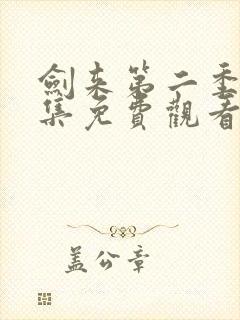 劍来第二季
集免費觀看
盖公章